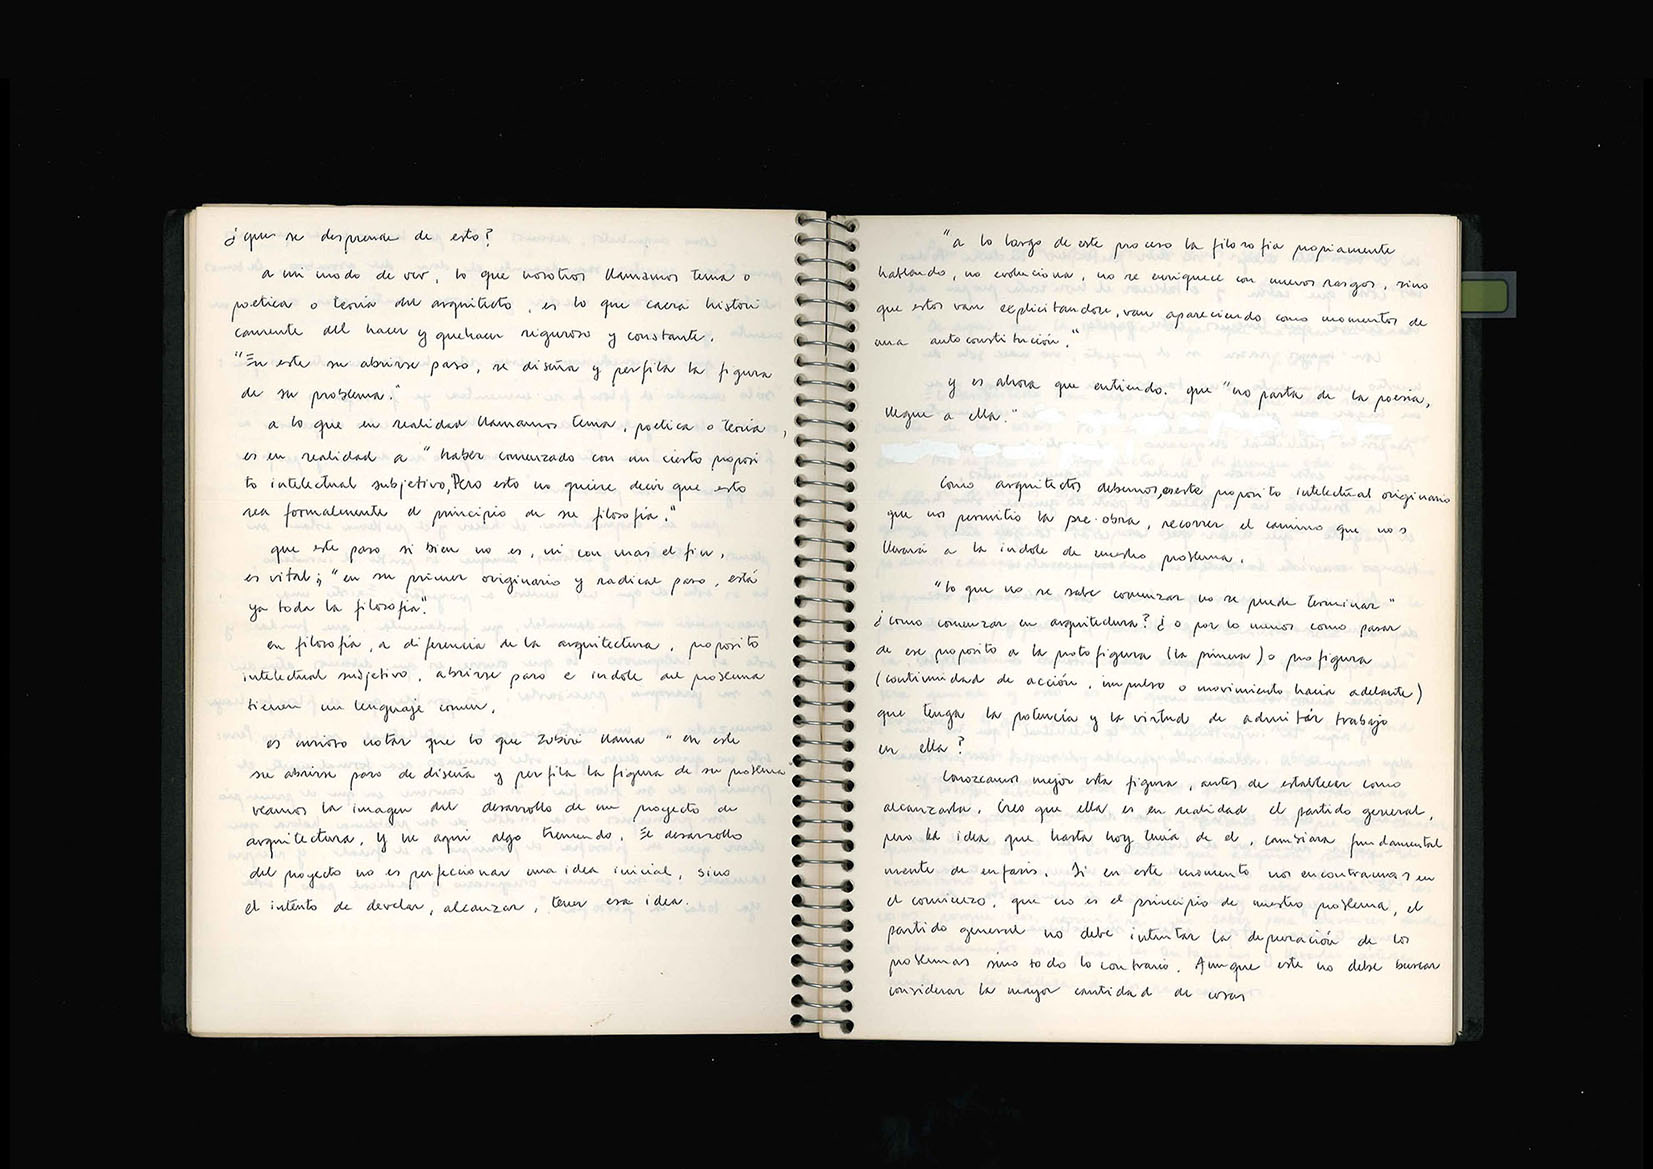 ¿que se desprende de esto?
a mi modo de ver, lo que nosotros llamamos tema o
poetica o teoria del arquitecto, es lo que caerá histori
camente del hacer y quehacer riguroso y constante.
"En este su abrirse paso, se diseña y perfila la figura
de su problema."
a lo que en realidad llamamos tema, poetica o teoria,
es en realidad a "haber comenzado con un cierto proposi
to intelectual subjetivo, Pero esto no quiere decir que esto
sea formalmente el principio de su filosofia."
que este paso si bien no es, ni con mas el fin,
es vital; "en su primer originario y radical paso, está
ya toda la filosofia".
en filosofia, a diferencia de la arquitectura, proposito
intelectual subjetivo, abrirse paso e indole del problema
tienen un lenguaje comun.
es curioso notar que lo que Zubiri llama "en este
su abrirse paso de diseña y perfila la figura de su problema"
veamos la imagen del desarrollo de un proyecto de
arquitectura. Y he aqui algo tremendo. El desarrollo
del proyecto no es perfeccionar una idea inicial, sino
el intento de develar, alcanzar, tener esa idea.
"a lo largo de este proceso la filosofia propiamente
hablando, no evoluciona, no se enriquece con nuevos rasgos, sino
que estos van explicitandose, van apareciendo como momentos de
una autoconstitución."
y es ahora que entiendo. que "no parta de la poesia,
llegue a ella."
Como arquitectos debemos, proposito intelectual originario
que nos permitio la pre-obra, recorrer el camino que nos
llevará a la indole de nuestro problema.
"lo que no se sabe comenzar no se puede terminar"
¿como comenzar en arquitectura? ¿o por lo menos como pasar
de ese proposito a la protofigura (la primera) o profigura
(continuidad de acción, impulso o movimiento hacia adelante)
que tenga la potencia y la virtud de admitir trabajo
en ella?
Conozcamos mejor esta figura, antes de establecer como
alcanzarla. Creo que ella es en realidad el partido general,
pero la idea que hasta hoy tenia de el, cambiara fundamental
mente de enfasis. Si en este momento nos encontramos en
el comienzo, que no es el principio de nuestro problema, el
partido general no debe intentar la depuración de los
problemas sino todo lo contrario. Aunque este no debe buscar
considerar la mayor cantidad de cosas